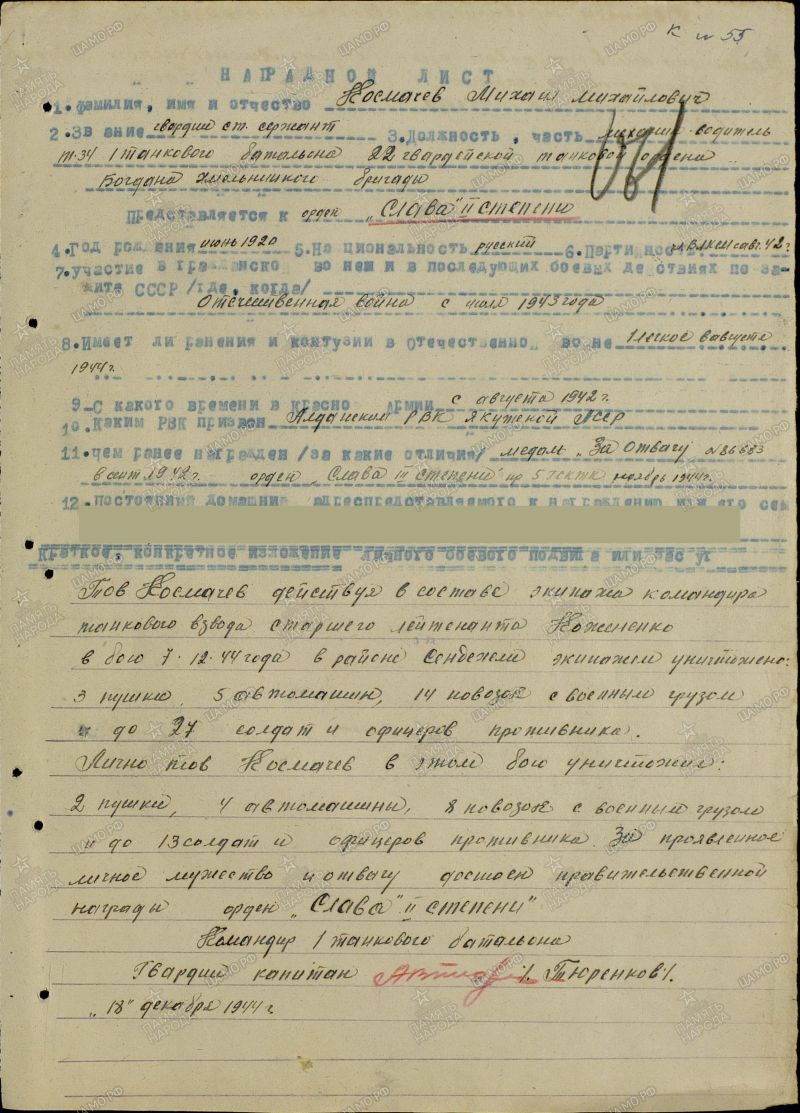 к № 55
НАГРАДНОЙ ЛИСТ
1. Фамилия, имя и отчество Космачев Михаил Михайлович
2. Звание гвардии ст. сержант 3. Должность, часть механик-водитель
Т-34 1 танкового батальона 22 гвардейской танковой ордена
Богдана Хмельницкого бригады
Представляется к орден „Слава" II степени
4. Год рождения июнь 1920 5. Национальность русский 6. Партийность чл. ВЛКСМ с авг. 42 г.
7. участие в гражданской войне и в последующих боевых действиях по за-
щите СССР /где, когда/
Отечественная война с июля 1943 года
8. Имеет ли ранения и контузии в Отечественной войне 1 легкое в августе
1944 г.
9. С какого времени в Красной Армии с августа 1942 г.
10. Каким РВК призван Алданским РВК Якутской АССР
11. чем ранее награжден /за какие отличия/ медаль „За отвагу №
орден „Слава III степени" пр 5 гктк ноябрь 1944 г.
12. Постоянный домашний адрес представляемого к награждению и его сем
Краткое, конкретное изложение личного боевого подвига или заслуг
Тов Космачев действуя в составе экипажа командира
танкового взвода старшего лейтенанта Кожененко
в бою 7.12.44 года в районе экипажем уничтожено:
3 пушки, 5 автомашин, 14 повозок с военным грузом
и до 27 солдат и офицеров противника.
Лично тов Космачев в этом бою уничтожил:
2 пушки, 4 автомашины, 8 повозок с военным грузом
и до 13 солдат и офицеров противника. За проявленное
личное мужество и отвагу достоен правительственной
награды орден „Слава" II степени"
Командир 1 танкового батальона
Гвардии капитан /. Тюренков /.
„18" декабря 1944 г.